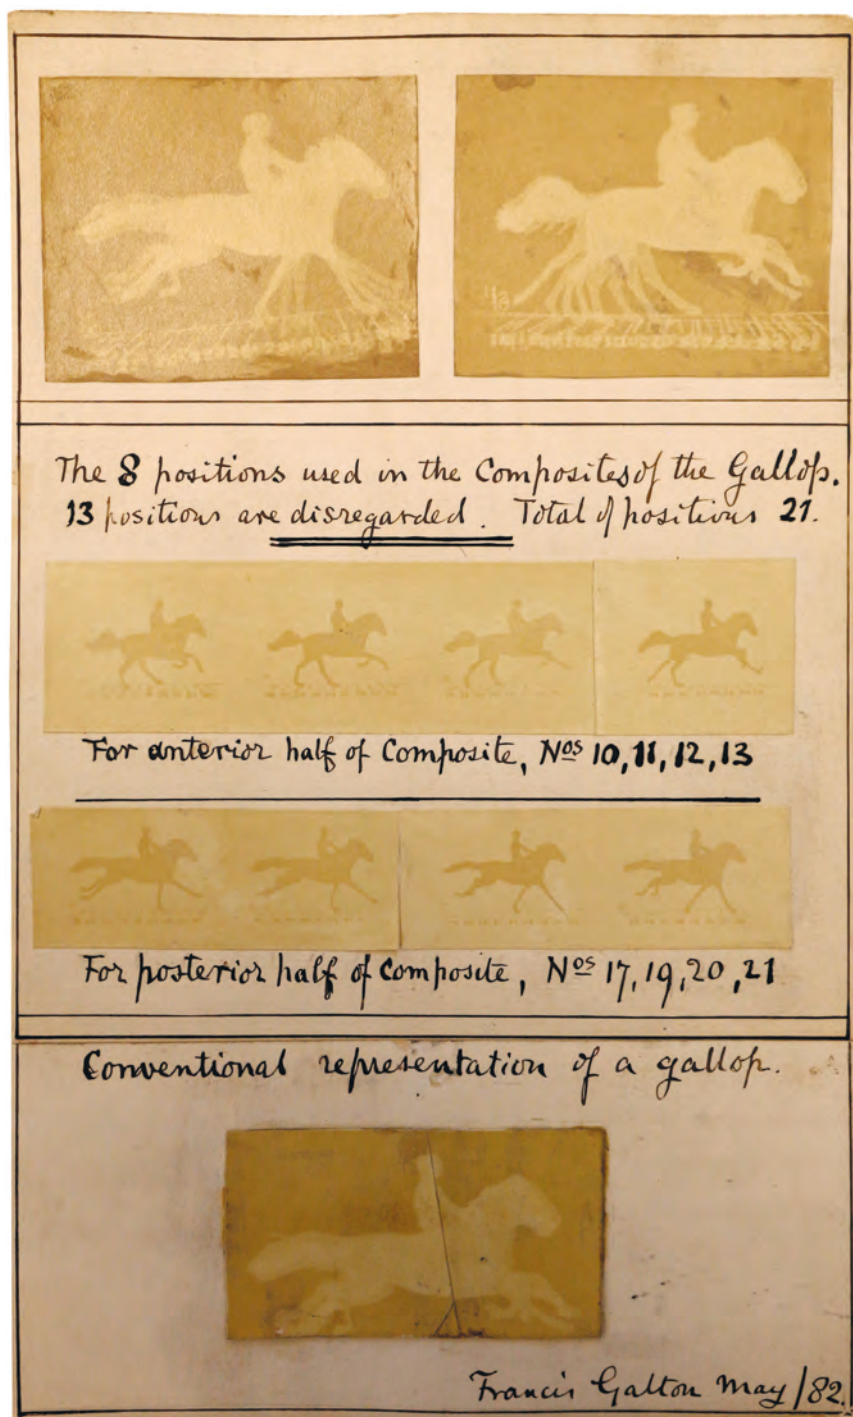 The 8 positions used in the Composites of the Gallop.
13 positions are disregarded. Total of positions 21.
For anterior half of Composite, Nos 10, 11, 12, 13
For posterior half of Composite, Nos 17, 19, 20, 21
Conventional representation of a gallop.
Francis Galton May/82.